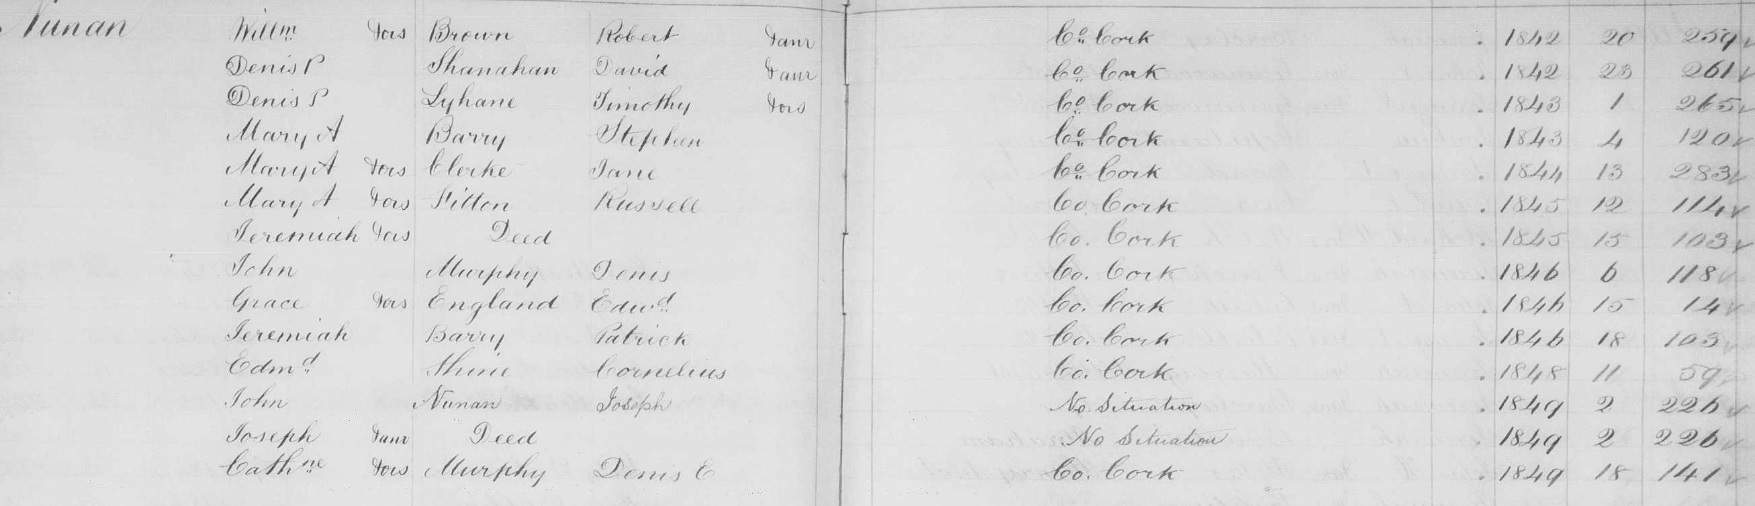 Nunan Willm. &ors Brown Robert &anr Co. Cork . 1842 20 259
Denis P Shanahan David &anr Co. Cork . 1842 23 261
Denis P Lyhane Timothy &ors Co. Cork . 1843 1 265
Mary A Barry Stephen Co. Cork . 1843 4 120
Mary A &ors Clerke Jane Co. Cork . 1844 13 283
Mary A &ors Sitton Russell Co. Cork . 1845 12 114
Jeremiah &ors Deed Co. Cork . 1845 15 103
John Murphy Denis Co. Cork . 1846 6 118
Grace &ors England Edwd. Co. Cork . 1846 15 14
Jeremiah Barry Patrick Co. Cork . 1846 18 103
Edmd. Shine Cornelius Co. Cork . 1848 11 59
John Nunan Joseph No Situation . 1849 2 226
Joseph &anr Deed No Situation . 1849 2 226
Cathne &ors Murphy Denis E Co. Cork . 1849 18 141